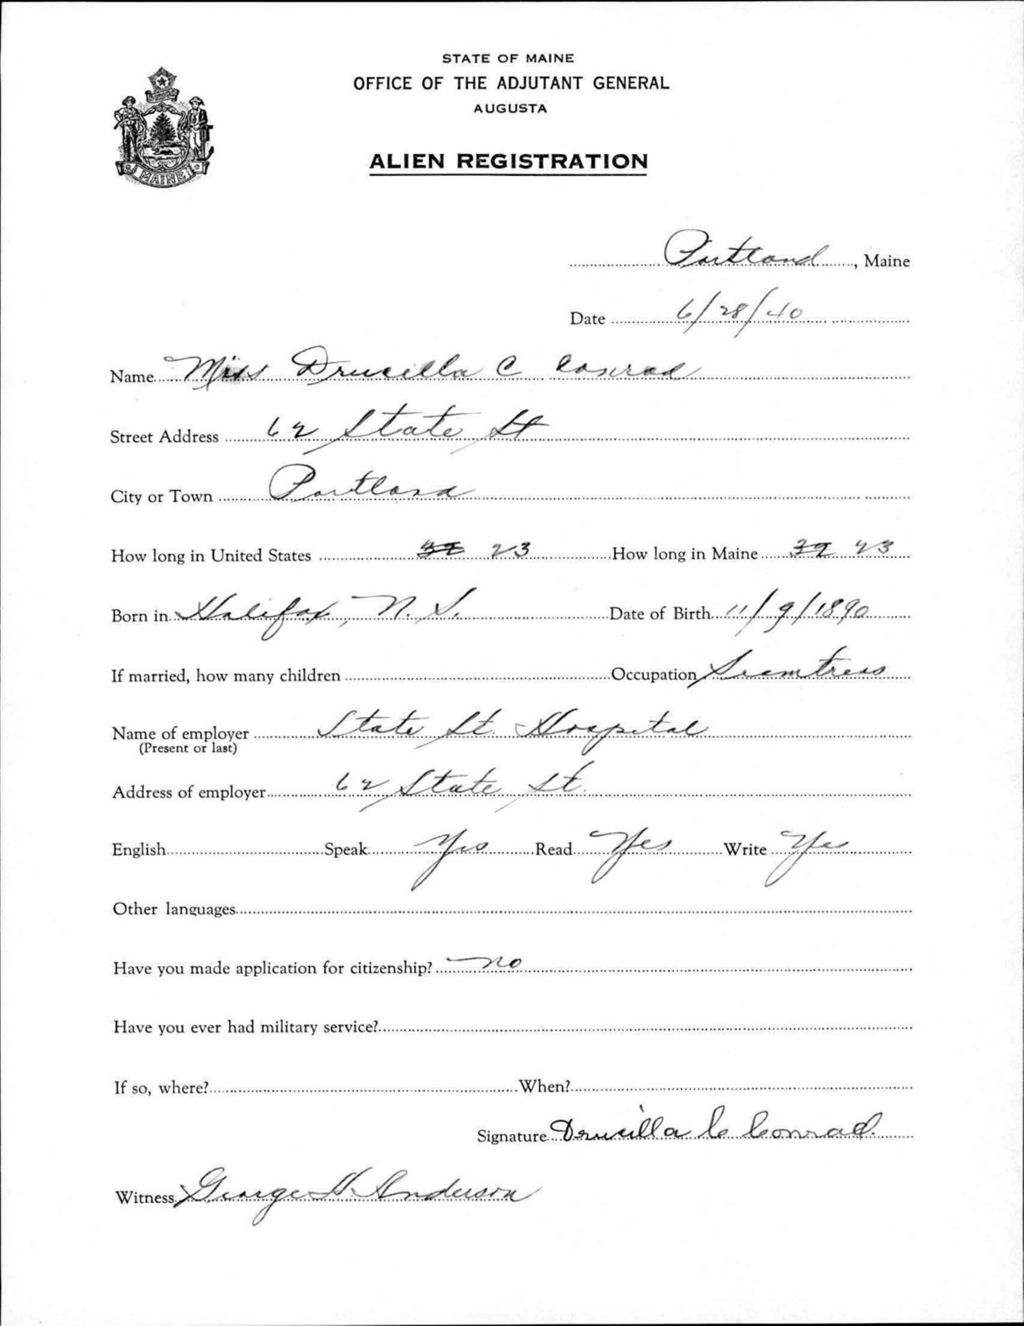 STATE OF MAINE
OFFICE OF THE ADJUTANT GENERAL
AUGUSTA
ALIEN REGISTRATION
Portland, Maine
Date 6/28/40
Name Miss Drucilla C Conrad
Street Address 62 State St
City or Town Portland
How long in United States 23 How long in Maine 23
Born in Halifax, N. S. Date of Birth 11/9/1890
If married, how many children Occupation Seamtress
Name of employer State St. Hospital
(Present or last)
Address of employer 62 State St.
English Speak Yes Read Yes Write Yes
Other languages
Have you made application for citizenship? no
Have you ever had military service?
If so, where? When?
Signature Drucilla C Conrad.
Witness George H. Anderson
MAINE